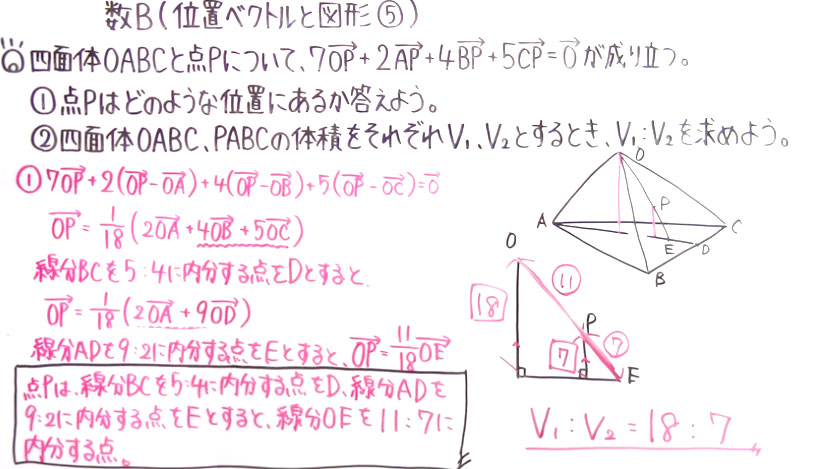 数B(位置ベクトルと図形⑤)
四面体OABCと点Pについて、7OP→+2AP→+4BP→+5CP→=0→が成り立つ。
①点Pはどのような位置にあるか答えよう。
②四面体OABC、PABCの体積をそれぞれV₁、V₂とするとき、V₁:V₂を求めよう。
①7OP→+2(OP→-OA→)+4(OP→-OB→)+5(OP→-OC→)=0→
OP→=1/18(2OA→+4OB→+5OC→)
線分BCを5:4に内分する点をDとすると
OP→=1/18(2OA→+9OD→)
線分ADを9:2に内分する点をEとすると、OP→=11/18OE→
点Pは、線分BCを5:4に内分する点をD、線分ADを
9:2に内分する点をEとすると、線分OEを11:7に
内分する点。
O
P
A
C
E
D
B
O
⑪
18
P
7
⑦
E
V₁:V₂=18:7